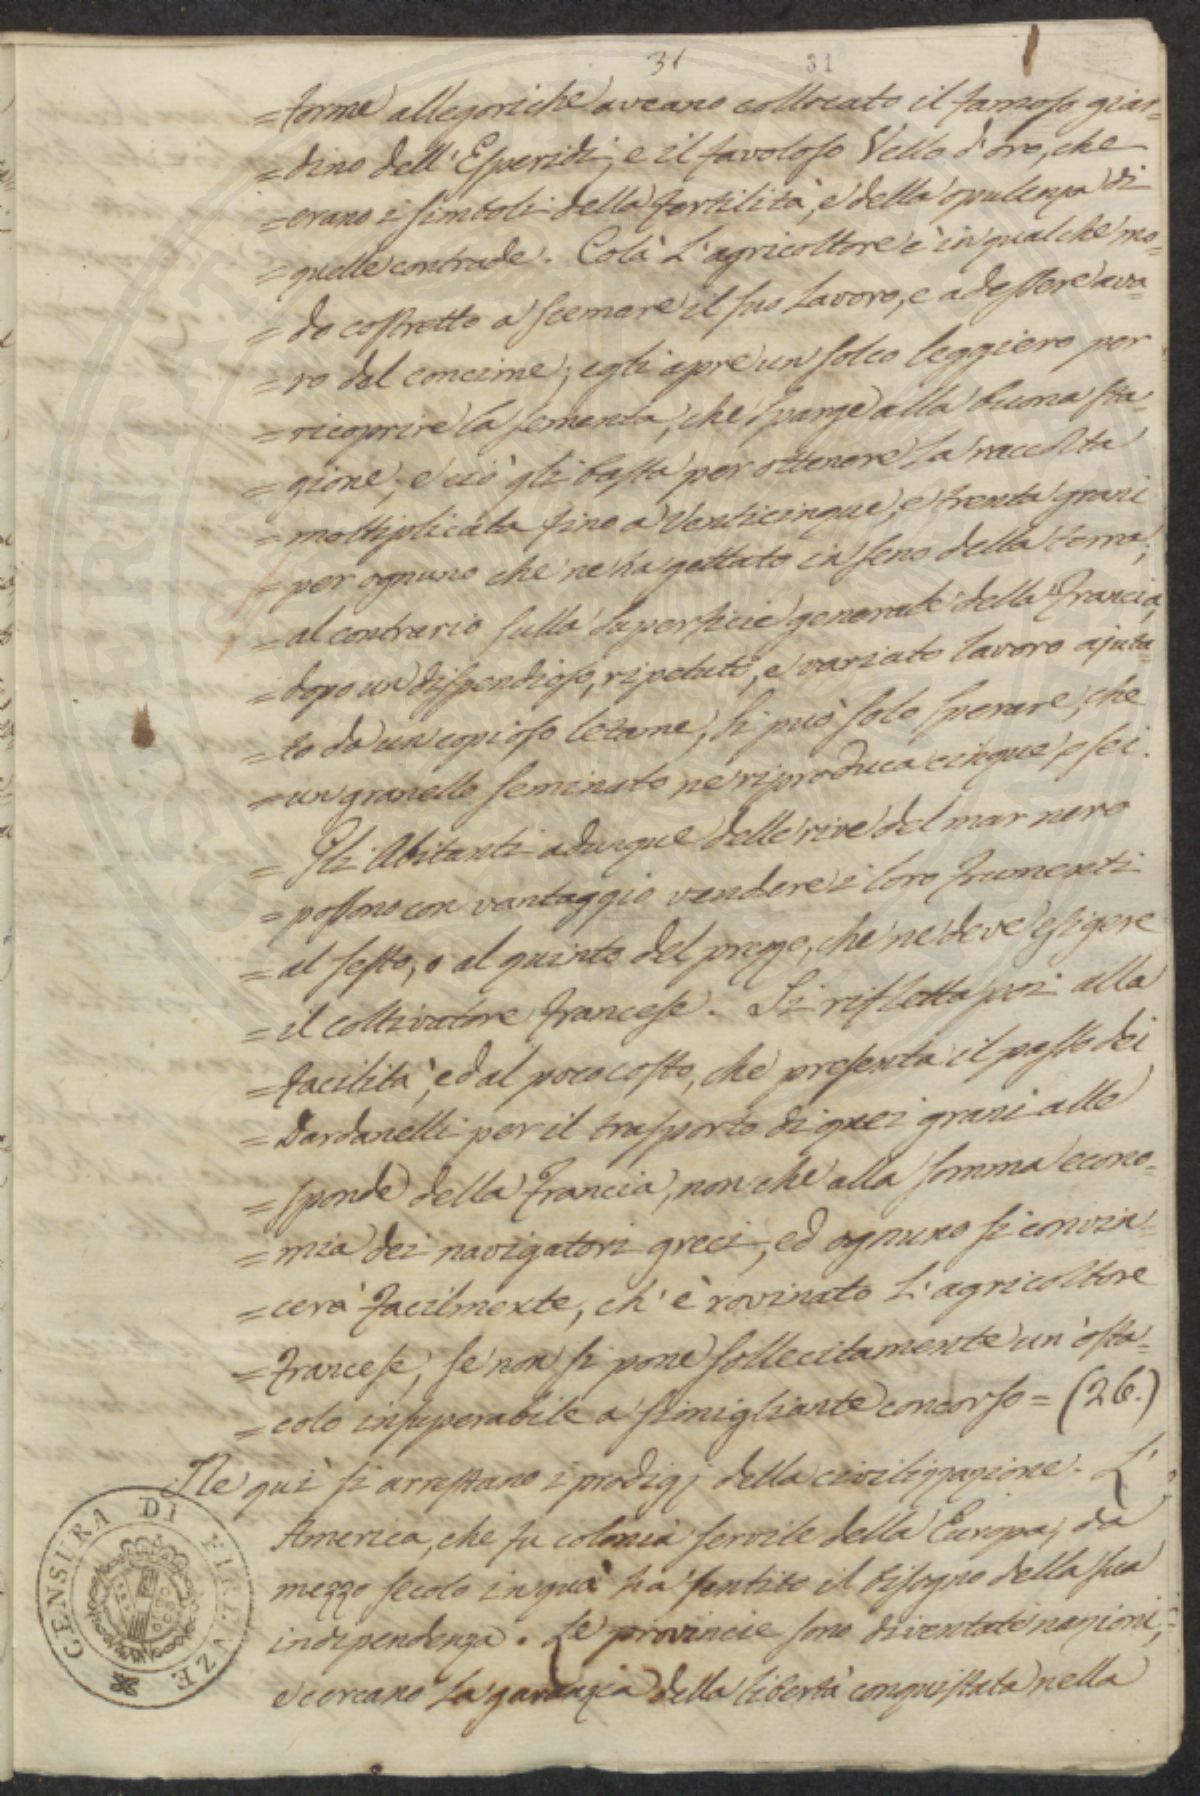 31 31
=forme allegoriche aveano collocato il famoso giar=
=dino dell'Esperidi, e il favoloso Vello d'oro, che
=erano i simboli della fertilità, e della opulenza di
=quelle contrade. Colà l'agricoltore è in qualche mo=
=do costretto a scemare il suo lavoro, e ad essere ava=
=ro del concime; egli apre un solco leggiero per
=ricoprire la sementa, che sparge alla buona sta=
=gione, e ciò gli basta per ottenere la raccolta
=moltiplicata fino a Venticinque, e trenta grani
=per ognuno che ne ha gettato in seno della terra;
=al contrario sulla superficie generale della Francia,
=dopo un dispendioso, ripetuto, e variato lavoro ajuta=
=to da un copioso letame, si può solo sperare, che
=un granello seminato ne riproduca cinque, o sei.
= Gli Abitanti adunque delle rive del mar nero
=possono con vantaggio vendere i loro frumenti
=al sesto, o al quinto del prezzo, che ne deve esigere
=il coltivatore francese. Si rifletta poi alla
=facilità, ed al poco costo, che presenta il passo dei
=Dardanelli per il trasporto di quei grani alle
=sponde della Francia, non che alla somma econo=
=mia dei navigatori greci, ed ognuno si convin=
=cerà facilmente, ch'è rovinato l'agricoltore
=francese, se non si pone sollecitamente un osta=
=colo insuperabile a simigliante concorso= (26.)
Ne quì si arrestano i prodigj della civilizzazione. L'
America, che fu colonia servile della Europa, da
mezzo secolo in quà ha sentito il bisogno della sua
indipendenza. Le provincie sono diventate nazioni,
e cercano la garanzia della libertà conquistata nella
CENSURA DI FIRENZE